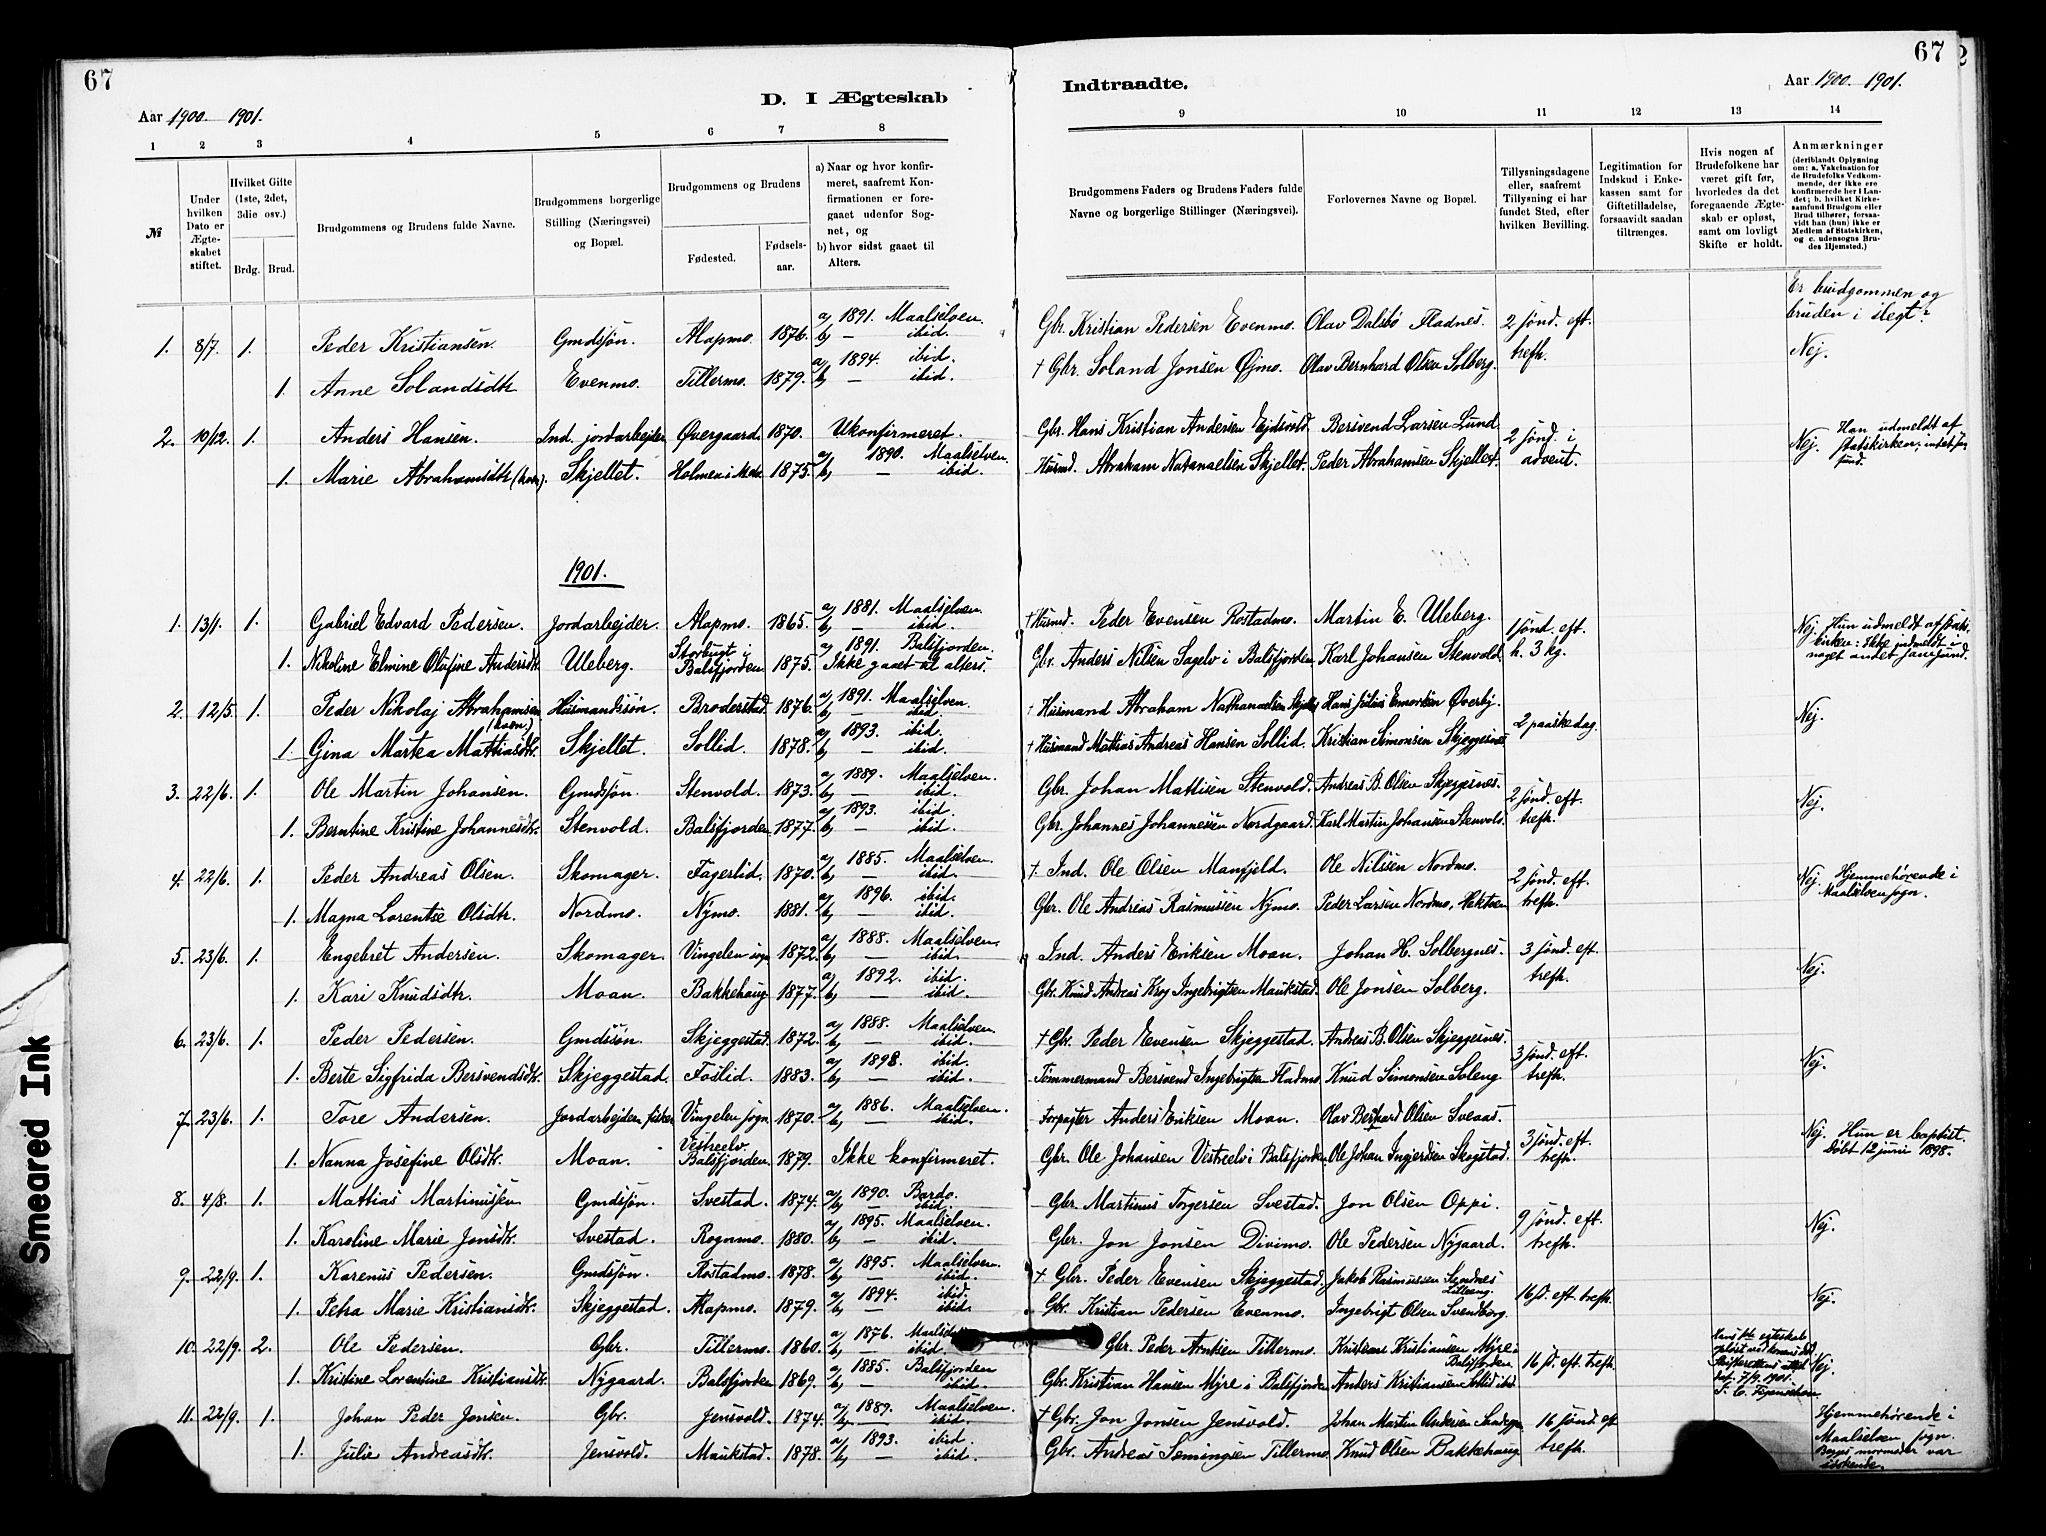 67
67
D. I Ægteskab
Indtraadte.
Aar 1900. 1901.
Aar 1900. 1901.
1 2 3 4 5 6 7 8
9 10 11 12 13 14
№
Under hvilken Dato er Ægteskabet stiftet.
Hvilket Gifte (1ste, 2det, 3die osv.)
Brdg. Brud.
Brudgommens og Brudens fulde Navne.
Brudgommens borgerlige Stilling (Næringsvei) og Bopæl.
Brudgommens og Brudens
Fødested.
Fødselsaar.
a) Naar og hvor konfirmeret, saafremt Konfirmationen er foregaaet udenfor Sognet, og
b) hvor sidst gaaet til Alters.
Brudgommens Faders og Brudens Faders fulde Navne og borgerlige Stillinger (Næringsvei).
Forlovernes Navne og Bopæl.
Tillysningsdagene eller, saafremt Tillysning ei har fundet Sted, efter hvilken Bevilling.
Legitimation for Indskud i Enkekassen samt for Giftetilladelse, forsaavidt saadan tiltrænges.
Hvis nogen af Brudefolkene har været gift før, hvorledes da det foregaaende Ægteskab er opløst, samt om lovligt Skifte er holdt.
Anmærkninger
(deriblandt Oplysning om: a. Vakcination for de Brudefolks Vedkommende, der ikke ere konfirmerede her i Landet; b. hvilket Kirkesamfund Brudgom eller Brud tilhører, forsaavidt han (hun) ikke er Medlem af Statskirken, og c. udensogns Brudes Hjemsted.)
Er brudgommen og bruden i slegt?
1. 8/7. 1. Peder Kristiansen. Gmdsjøn. Alapmo. 1876. a) 1891. Maalselven. b) — ibid. Gbr. Kristian Pedersen Evenmo. Olav Dalsbø Fladnes. 2 sønd. eft. trefh. Nej.
1. Anne Solandsdtr Evenmo. Tillermo. 1879. a) 1894. ibid. b) — ibid. † Gbr. Soland Jonsen Øjmo. Olav Bernhard Olsen Solberg.
2. 10/12. 1. Anders Hansen. Ind. jordarbejder Øvergaard. 1870. Ukonfirmeret. Gbr. Hans Kristian Andersen Ejdsvold. Bersvend Larsen Lund 2 sønd. i advent. Nej. Han udmeldt af statskirken; intet
1. Marie Abrahamsdtr (kvæn). Skjellet. Holmen i 1875. a) 1890. Maalselven. b) — ibid. Husmd. Abraham Natanaelsen Skjellet. Peder Abrahamsen Skjellet.
1901.
1. 13/1. 1. Gabriel Edvard Pedersen. Jordarbejder. Alapmo. 1865. a) 1881. Maalselven. b) — ibid. † Husmd. Peder Evensen Rostadmo. Martin E. Uleberg. 1 sønd. eft. h. 3 kg. Nej. Hun udmeldt af stats kirken: Ikke indmeldt i noget andet samfund.
1. Nikoline Elmine Olafine Andersdtr. Uleberg. Storbugt i Balsfjorden 1875. a) 1891. Balsfjorden. Ikke gaaet til alters. Gbr. Anders Nilsen Sagelv i Balsfjorden. Karl Johansen Stenvold.
2. 12/5. 1. Peder Nikolaj Abrahamsen (kvæn) Husmandssøn. Broderstad. 1876. a) 1891. Maalselven. b) — ibid. † Husmand Abraham Nathanaelsen Skjellet Hans Julius Enoksen Øverby. 2 paaskedag. Nej.
1. Gina Marka Mattiasdtr. Skjellet. Sollid. 1878. a) 1893. ibid. b) — ibid. † Husmand Mattias Andreas Hansen Sollid. Kristian Simonsen Skjeggesnes
3. 22/6. 1. Ole Martin Johansen. Gmdsjøn. Stenvold. 1873. a) 1889. Maalselven. b) — ibid. Gbr. Johan Mattisen Stenvold. Andreas B. Olsen Skjeggesnes. 2 sønd. eft. trefh. Nej.
1. Berntine Kristine Johannesdtr. Stenvold. Balsfjorden 1877. a) 1893. ibid. b) — ibid. Gbr. Johannes Johannesen Nordgaard. Karl Martin Johansen Stenvold.
4. 22/6. 1. Peder Andreas Olsen. Skomager. Fagerlid. 1870. a) 1885. Maalselven. b) — ibid. †. Ind. Ole Olsen Manfjeld. Ole Nilsen Nordmo. 2 sønd. eft. trefh. Nej. Hjemmehørende i Maalselven sogn.
1. Magna Lorentse Olsdtr. Nordmo. Nymo. 1881. a) 1896. ibid. b) — ibid. Gbr. Ole Andreas Rasmussen Nymo. Peder Larsen Nordmo,
5. 23/6. 1. Engebret Andersen. Skomager. Vingelen sogn 1872. a) 1888. Maalselven. b) — ibid. Ind. Anders Eriksen Moan. Johan H. Solbergnes. 3 sønd. eft. trefh. Nej.
1. Kari Knudsdtr. Moan. Bakkehaug 1877. a) 1892. ibid. b) — ibid. Gbr. Knud Andreas Krog Ingebrigtsen Maukstad. Ole Jonsen Solberg.
6. 23/6. 1. Peder Pedersen. Gmdsjøn. Skjeggestad. 1872. a) 1888. Maalselven. b) — ibid. † Gbr. Peder Evensen Skjeggestad. Andreas B. Olsen Skjeggesnes. 3 sønd. eft. trefh. Nej.
1. Berte Sigfrida Bersvendsdtr. Skjeggestad. Foslid. 1883. a) 1898. ibid. b) — ibid. Tømmermand Bersvend Ingebrigtsen Fladmo. Knud Simonsen Soleng.
7. 23/6. 1. Tore Andersen. Jordarbejder, fisker Vingelen sogn. 1870. a) 1886. Maalselven. b) — ibid. Forpagter Anders Eriksen Moan. Olav Bernhard Olsen Sveaas. 3 sønd. eft. trefh. Nej. Hun er baptist. Døbt 12 juni 1898.
1. Nanna Josefine Olsdtr. Moan. Vestreelv. Balsfjorden. 1879. Ikke konfirmeret. Gbr. Ole Johansen Vestreelv i Balsfjorden. Ole Johan Ingjerdsen Skogstad.
8. 4/8. 1. Mattias Martinussen. Gmdsjøn. Svestad. 1874. a) 1890. Bardo. b) — ibid. Gbr. Martinus Torgersen Svestad. Jon Olsen Oppi. 9 sønd. eft. trefh. Nej.
1. Karoline Marie Jonsdtr. Svestad. Rognmo. 1880. a) 1895. Maalselven. b) — ibid. Gbr. Jon Jonsen Divimo. Ole Pedersen Nygaard.
9. 22/9. 1. Karenus Pedersen. Gmdsjøn. Rostadmo. 1878. a) 1895. Maalselven. b) — ibid. † Gbr. Peder Evensen Skjeggestad. Jakob Rasmussen Sandnes Lilleeng. 16 s. eft. trefh. Nej.
1. Petra Marie Kristiansdtr. Skjeggestad. Alapmo. 1879. a) 1894. ibid. b) — ibid. Gbr. Kristian Pedersen Evenmo. Ingebrigt Olsen Svendborg.
10. 22/9. 2. Ole Pedersen. Gbr. Tillermo. 1860. a) 1876. Maalselven b) — ibid. Gbr. Peder Arntsen Tillermo. Kristian Kristiansen Myre i Balsfjorden. 16 s. eft. trefh. Hans 1ste egteskab opløst ved konens død. Skifterettens attest 7/9. 1901. Nej.
1. Kristine Lorentine Kristiansdtr. Nygaard. Balsfjorden 1869. a) 1885. Balsfjorden b) — ibid. Gbr. Kristian Hansen Myre i Balsfjorden. Anders Kristiansen Sollid ibid.
11. 22/9. 1. Johan Peder Jonsen. Gbr. Jensvold. 1874. a) 1889. Maalselven. b) — ibid. † Gbr. Jon Jonsen Jensvold. Johan Martin Andersen 16 sønd. eft trefh. Hjemmehørende i Maalselven sogn. Begges mormødre var søskende.
1. Julie Andreasdtr. Jensvold. Maukstad. 1878. a) 1893. ibid. b) — ibid. Gbr. Andreas Semingsen Tillermo. Knud Olsen Bakkehaug
Smeared Ink